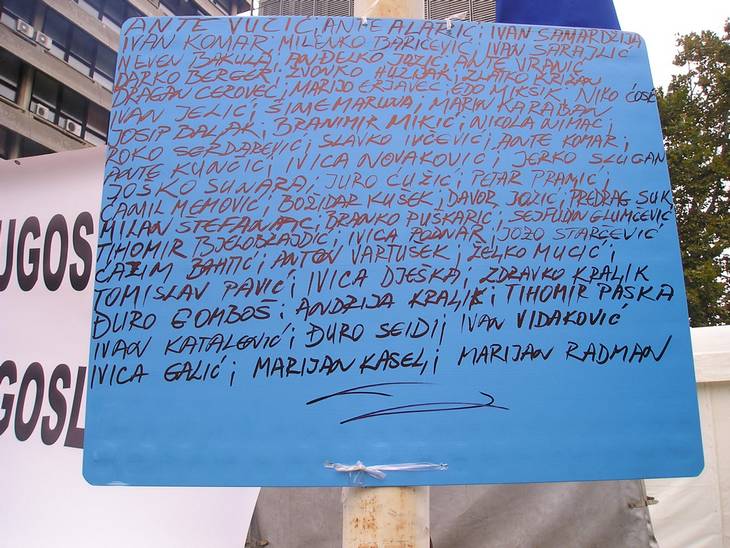 ANTE VUČIĆ; ANTE ALADŽIĆ; IVAN SAMARDŽIJA
IVAN KOMAR; MILENKO BARIČEVIĆ; IVAN SARAJLIĆ
NEVEN BAKULA; ANĐELKO JOZIĆ; ANTE VRANIĆ
DARKO BERGER; ZVONKO HUZJAK; ZLATKO KRIŽAN
DRAGAN CEROVEC; MARIJO ERJAVEC; EDO MIKŠIK; NIKO
IVAN JELIĆ; ŠIME MARUNA; MARIN KARABAN
JOSIP BALJAK; BRANIMIR MIKIĆ; NIKOLA NIMAC;
ROKO SERDAREVIĆ; SLAVKO IVČEVIĆ; ANTE KOMAR;
ANTE KUNČIĆ; IVICA NOVAKOVIĆ; JERKO SLUGAN
JOŠKO SUNARA; JURO ĆUŽIĆ; PETAR PRAMIĆ;
ĆAMIL MEMOVIĆ; BOŽIDAR KUŠEK; DAVOR JOZIĆ; PREDRAG SUK
MILAN STEFANATIC; BRANKO PUŠKARIĆ; SEJFUDIN GLUMČEVIĆ
TIHOMIR BJELOBRAJDIĆ; IVICA PODNAR; JOZO STARČEVIĆ
ĆAZIM BAHTIĆ; ANTON VARTUŠEK; ŽELKO MUCIĆ;
TOMISLAV PAVIĆ; IVICA DJEŠKA; ZDRAVKO KRALIK
ĐURO GOMBOŠ; ANDRIJA KRALIK; TIHOMIR PAŠKA
IVAN KATALENIĆ; ĐURO SEIDI; IVAN VIDAKOVIĆ
IVICA GALIĆ; MARIJAN KASELJ; MARIJAN RADMAN
UGOS
GOSL